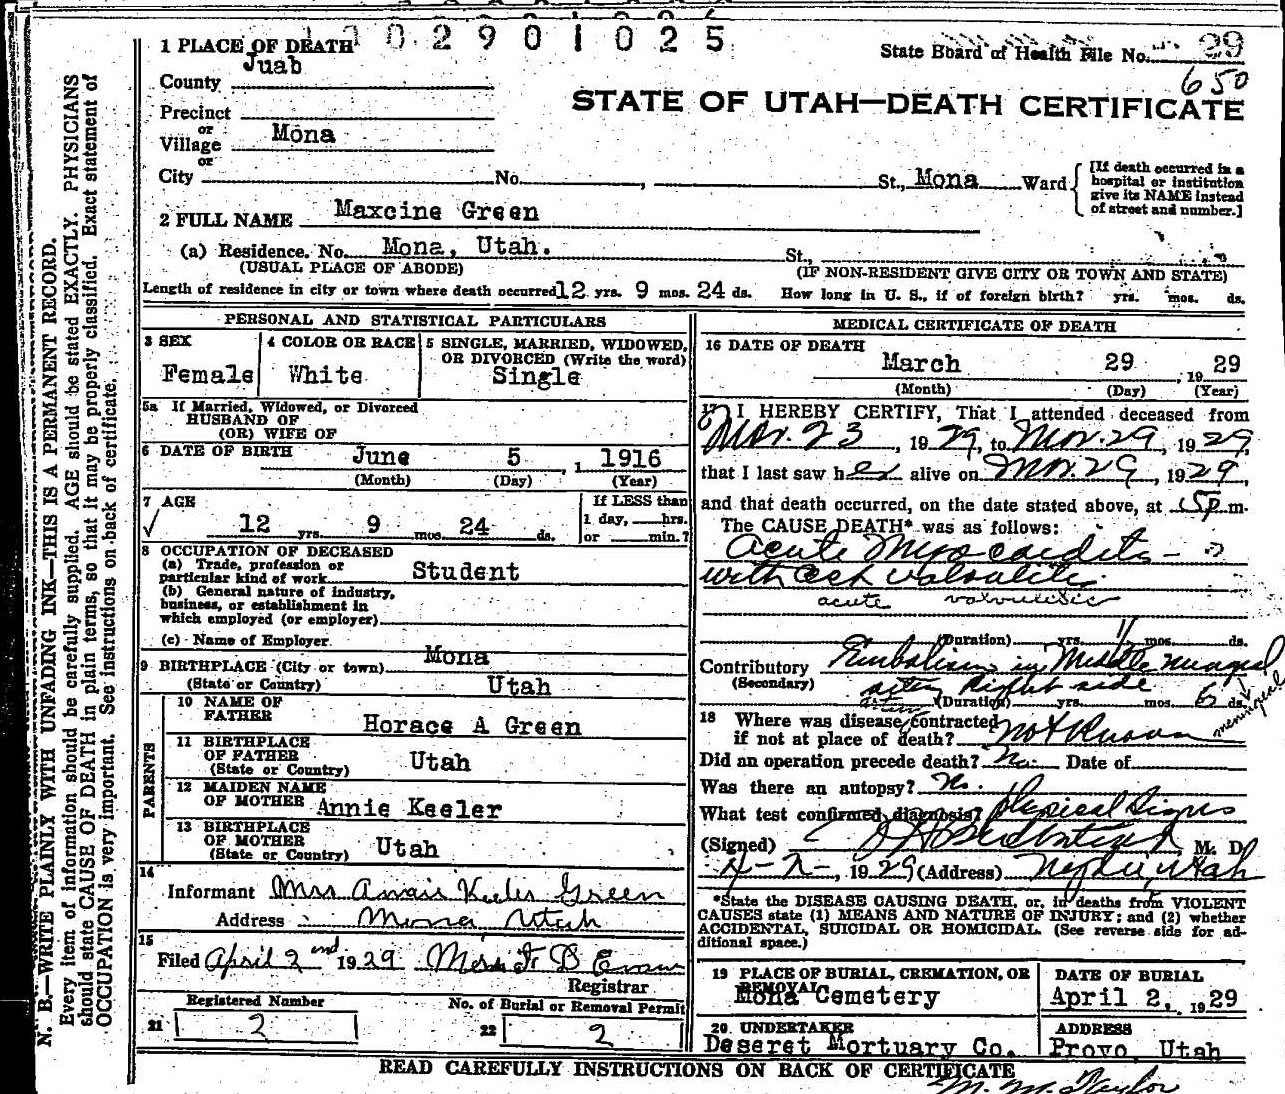 N. B.—WRITE PLAINLY WITH UNFADING INK—THIS IS A PERMANENT RECORD.
Every item of information should be carefully supplied. AGE should be stated EXACTLY. PHYSICIANS
should state CAUSE OF DEATH in plain terms, so that it may be properly classified. Exact statement of
OCCUPATION is very important. See instructions on back of certificate.
0 2 9 0 1 0 2 5
1 PLACE OF DEATH
State Board of Health File No. 29
650
County Juab
STATE OF UTAH—DEATH CERTIFICATE
Precinct
or
Village Mona
or
City No. , St., Mona Ward
[If death occurred in a
hospital or institution
give its NAME instead
of street and number.]
2 FULL NAME Maxcine Green
(a) Residence. No. Mona, Utah. St.,
(USUAL PLACE OF ABODE) (IF NON-RESIDENT GIVE CITY OR TOWN AND STATE)
Length of residence in city or town where death occurred 12 yrs. 9 mos. 24 ds. How long in U. S., if of foreign birth? yrs. mos. ds.
PERSONAL AND STATISTICAL PARTICULARS
3 SEX
Female
4 COLOR OR RACE
White
5 SINGLE, MARRIED, WIDOWED,
OR DIVORCED (Write the word)
Single
5a If Married, Widowed, or Divorced
HUSBAND OF
(OR) WIFE OF
6 DATE OF BIRTH June 5 , 1916
(Month) (Day) (Year)
7 AGE
12 yrs. 9 mos. 24 ds.
If LESS than
1 day, hrs.
or min.?
8 OCCUPATION OF DECEASED
(a) Trade, profession or
particular kind of work Student
(b) General nature of industry,
business, or establishment in
which employed (or employer)
(c) Name of Employer
9 BIRTHPLACE (City or town) Mona
(State or Country) Utah
PARENTS
10 NAME OF
FATHER Horace A Green
11 BIRTHPLACE
OF FATHER
(State or Country) Utah
12 MAIDEN NAME
OF MOTHER Annie Keeler
13 BIRTHPLACE
OF MOTHER
(State or Country) Utah
14
Informant Mrs Annie Keeler Green
Address Mona Utah
15
Filed April 2nd 1929
Registrar
Registered Number
21 2
No. of Burial or Removal Permit
22 2
MEDICAL CERTIFICATE OF DEATH
16 DATE OF DEATH
March 29 , 19 29
(Month) (Day) (Year)
17 I HEREBY CERTIFY, That I attended deceased from
Mar. 23 , 1929, to Mar. 29, 1929,
that I last saw her alive on Mar. 29, 1929,
and that death occurred, on the date stated above, at 5 p m.
The CAUSE DEATH* was as follows:
Acute Myocarditis
with acute valvulitis
acute valvulitis
(Duration) yrs. mos. ds.
Contributory Embolism in Middle Meningeal
(Secondary) artery Right side
artery (Duration) yrs. mos. 6 ds.
meningeal
18 Where was disease contracted
if not at place of death? not Known
Did an operation precede death? No. Date of
Was there an autopsy? No.
What test confirmed diagnosis? Physical Signs
(Signed) M. D.
4-2-, 1929 (Address) Nephi, Utah
*State the DISEASE CAUSING DEATH, or, in deaths from VIOLENT
CAUSES state (1) MEANS AND NATURE OF INJURY; and (2) whether
ACCIDENTAL, SUICIDAL OR HOMICIDAL. (See reverse side for ad-
ditional space.)
19 PLACE OF BURIAL, CREMATION, OR
REMOVAL
Mona Cemetery
DATE OF BURIAL
April 2, 1929
20. UNDERTAKER
Deseret Mortuary Co.
ADDRESS
Provo, Utah
READ CAREFULLY INSTRUCTIONS ON BACK OF CERTIFICATE
M. M. Taylor